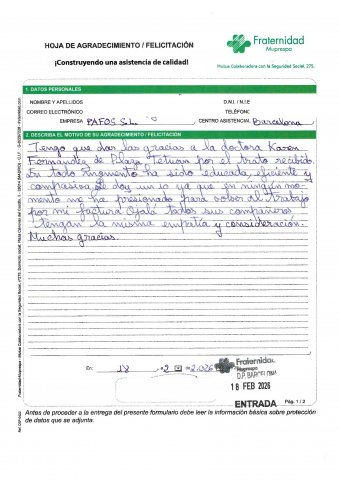 HOJA DE AGRADECIMIENTO / FELICITACIÓN
¡Construyendo una asistencia de calidad!
Fraternidad
Muprespa
Mutua Colaboradora con la Seguridad Social, 275.
1. DATOS PERSONALES
NOMBRE Y APELLIDOS
D.N.I. / N.I.E
CORREO ELECTRÓNICO
TELÉFONO
EMPRESA PAFOS S.L.
CENTRO ASISTENCIAL Barcelona
2. DESCRIBA EL MOTIVO DE SU AGRADECIMIENTO / FELICITACIÓN
Tengo que dar las gracias a la doctora Karen
Fernandez de Plaza Tetuan por el trato recibido.
En todo momento ha sido educada, eficiente y
compresiva. Le doy un 10 ya que en ningún mo-
mento me ha presionado para volver al trabajo
por mi factura Ojalá todos sus compañeros
tengan la misma empatía y consideración.
Muchas gracias.
En: 18 2 2026
Fraternidad
Muprespa
D.P. BARCELONA
18 FEB 2026
ENTRADA
Pág. 1 / 2
Antes de proceder a la entrega del presente formulario debe leer la información básica sobre protección
de datos que se adjunta.